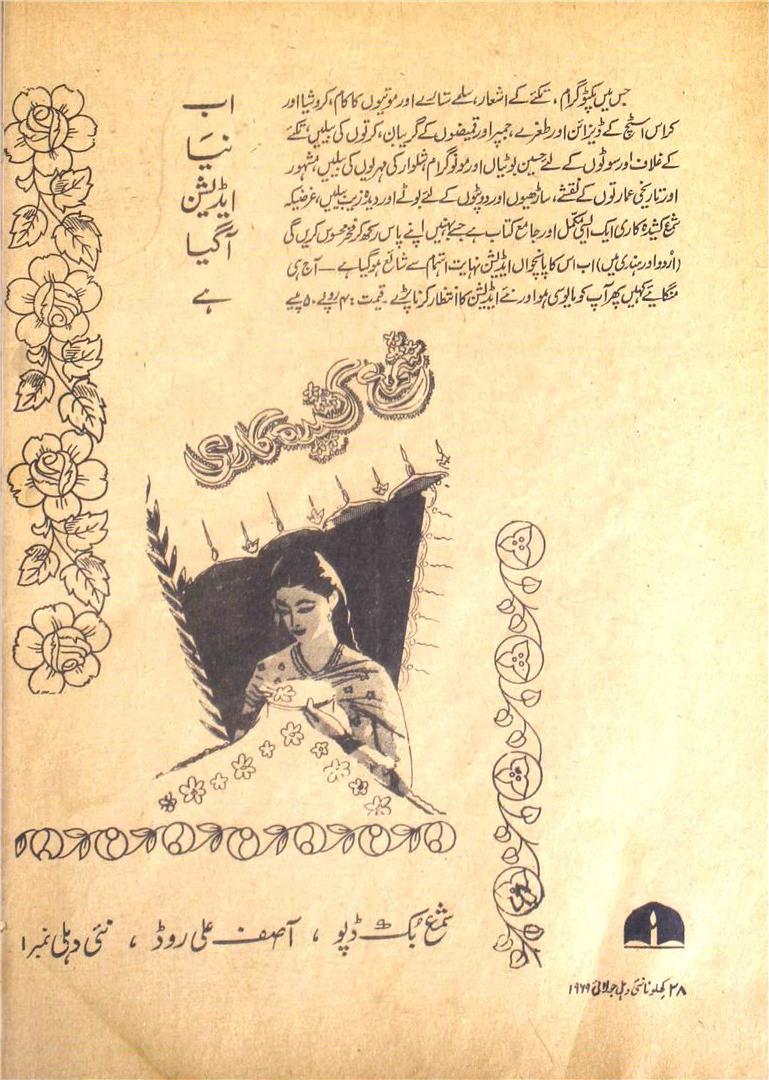 جس میں پکٹوگرام، تکئے کے اشعار، سلمے ستارے اور موتیوں کا کام، کروشیا اور
کراس اسٹچ کے ڈیزائن اور طغرے، جمپر اور قمیضوں کے گریبان، کرتوں کی بیلیں، تکئے
کے غلاف اور سوٹوں کے لئے حسین بوٹیاں اور مونوگرام، شلوار کی مہریوں کی بیلیں، مشہور
اور تاریخی عمارتوں کے نقشے، ساڑھیوں اور دوپٹوں کے لئے بوٹے اور دیدہ زیب بیلیں، غرضیکہ
شمع کشیدہ کاری ایک ایسی مکمل اور جامع کتاب ہے جسے بہنیں اپنے پاس رکھ کر فخر محسوس کریں گی
(اُردو اور ہندی میں) اب اس کا پانچواں ایڈیشن نہایت اہتمام سے شائع ہو گیا ہے — آج ہی
منگائیے کہیں پھر آپ کو مایوسی ہو اور نئے ایڈیشن کا انتظار کرنا پڑے۔ قیمت: ۴ روپے ۵۰ پیسے
اب
نیا
ایڈیشن
آگیا
ہے
شمع کشیدہ کاری
شمع بُک ڈپو، آصف علی روڈ، نئی دہلی نمبر ۱
۲۸ کھلونا نئی دہلی جولائی ۱۹۶۹